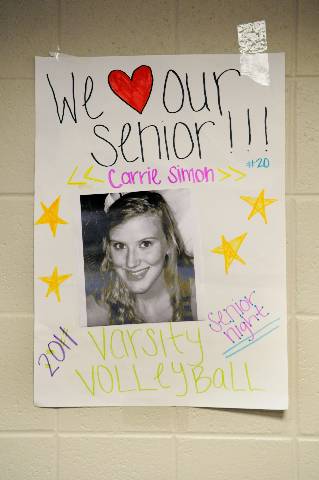 We ♥ our
senior!!!
#20
<< Carrie Simon >>
senior
night
2011
Varsity
Volleyball